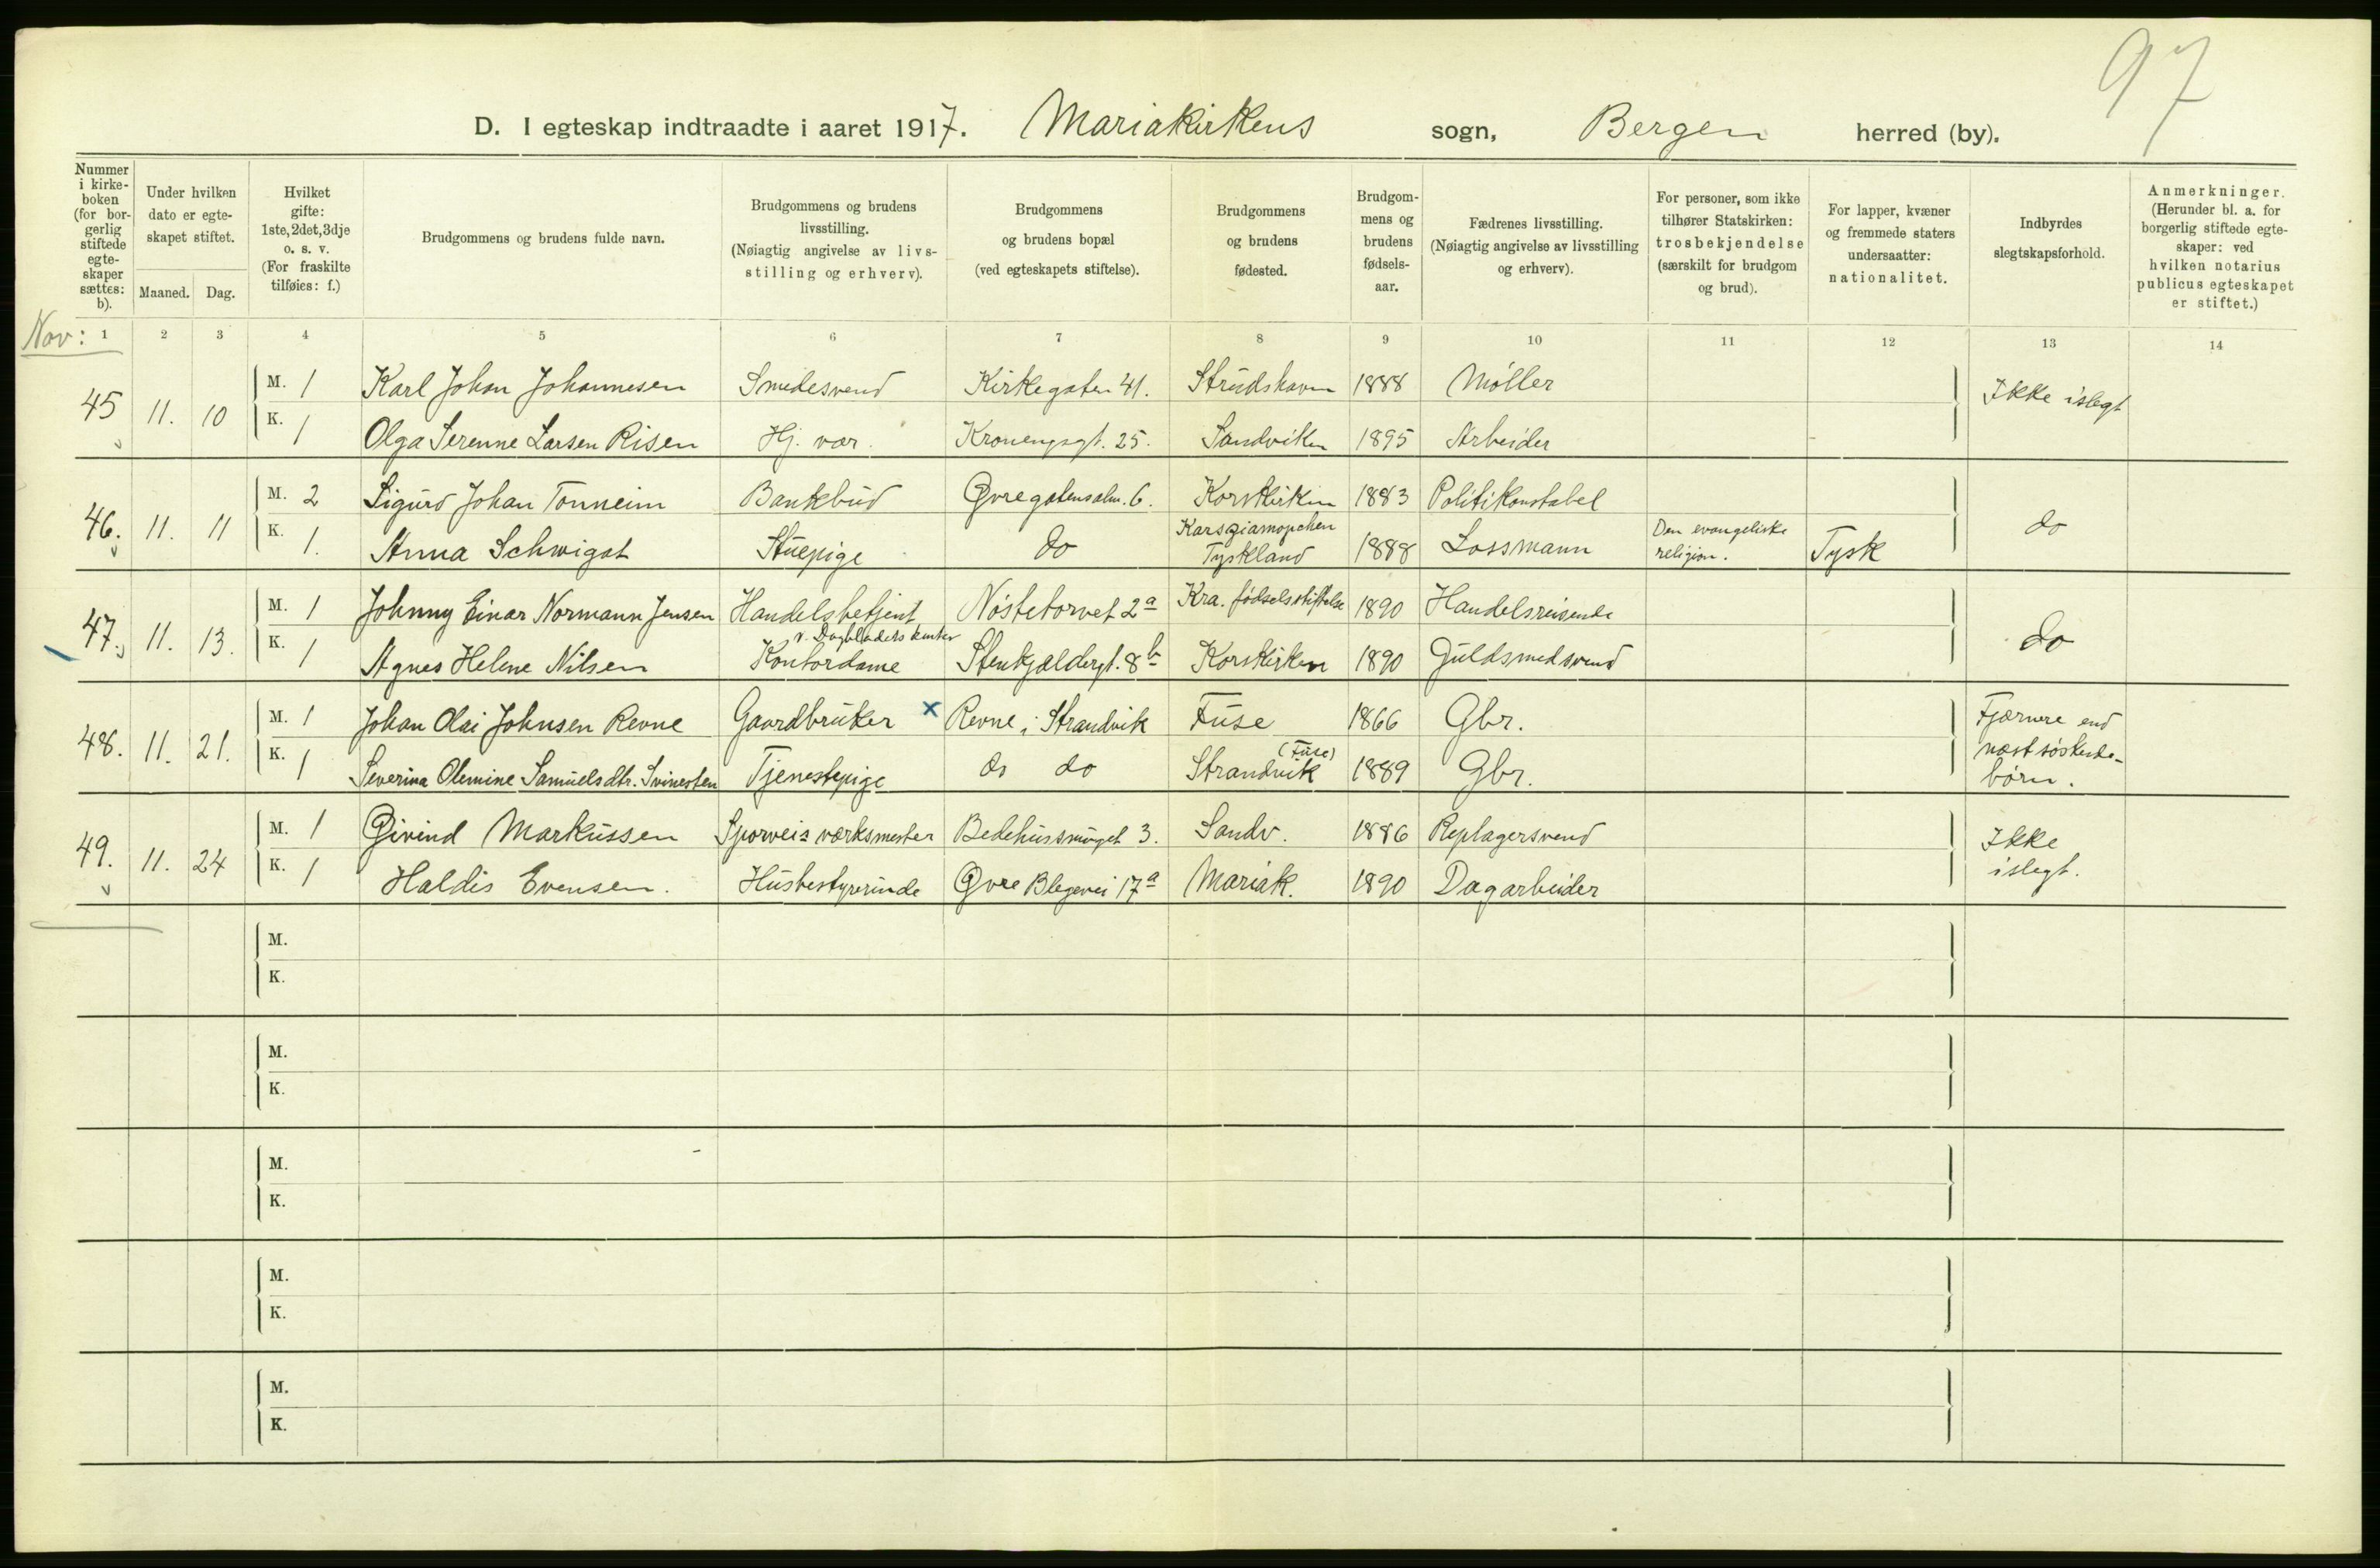 97
D. I egteskap indtraadte i aaret 1917. Mariakirkens sogn, Bergen herred (by).
Nummer i kirke-boken (for bor-gerlig stiftede egte-skaper sættes: b).
Under hvilken dato er egte-skapet stiftet.
Maaned. Dag.
Hvilket gifte: 1ste, 2det, 3dje o. s. v. (For fraskilte tilføies: f.)
Brudgommens og brudens fulde navn.
Brudgommens og brudens livsstilling. (Nøiagtig angivelse av livs-stilling og erhverv).
Brudgommens og brudens bopæl (ved egteskapets stiftelse).
Brudgommens og brudens fødested.
Brudgom-mens og brudens fødsels-aar.
Fædrenes livsstilling. (Nøiagtig angivelse av livsstilling og erhverv).
For personer, som ikke tilhører Statskirken: trosbekjendelse (særskilt for brudgom og brud).
For lapper, kvæner og fremmede staters undersaatter: nationalitet.
Indbyrdes slegtskapsforhold.
Anmerkninger. (Herunder bl. a. for borgerlig stiftede egte-skaper: ved hvilken notarius publicus egteskapet er stiftet.)
Nov:
1 2 3 4 5 6 7 8 9 10 11 12 13 14
45 11. 10 M. 1 Karl Johan Johannesen Smedesvend Kirkegaten 41. Strudshavn 1888 Møller Ikke islegt
K. 1 Olga Serenne Larsen Risen Hj. vær. Kronengsgt. 25. Sandviken 1895 Arbeider
46. 11. 11 M. 2 Sigurd Johan Tonneim Bankbud Øvregatensalm. 6. Korskirken 1883 Politikonstabel do
K. 1. Anna Schwigat Stuepige do Karsziamopchen Tyskland 1888 Lossmann Den evangeliske religion. Tysk
47. 11. 13. M. 1 Johnny Einar Normann Jensen Handelsbetjent Nøstetorvet 2a Kra. fødselsstiftelse 1890 Handelsreisende do
K. 1 Agnes Helene Nilsen v. Dagbladets kontor Kontordame Stenkjeldergt. 8b Korskirken 1890 Guldsmedsvend
48. 11. 21. M. 1 Johan Olai Johnsen Revne Gaardbruker x Revne i Strandvik Fuse 1866 Gbr. Fjærnere end næstsøskende-børn.
K. 1 Severina Olemine Samuelsdtr. Svinesten Tjenestepige do do Strandvik (Fuse) 1889 Gbr.
49. 11. 24 M. 1 Øivind Markussen Sporveisværksmester Bedehussmuget 3. Sandv. 1886 Replagersvend Ikke islegt.
K. 1 Haldis Evensen. Husbestyrerinde Øvre Blegevei 17a Mariak. 1890 Dagarbeider
M.
K.
M.
K.
M.
K.
M.
K.
M.
K.